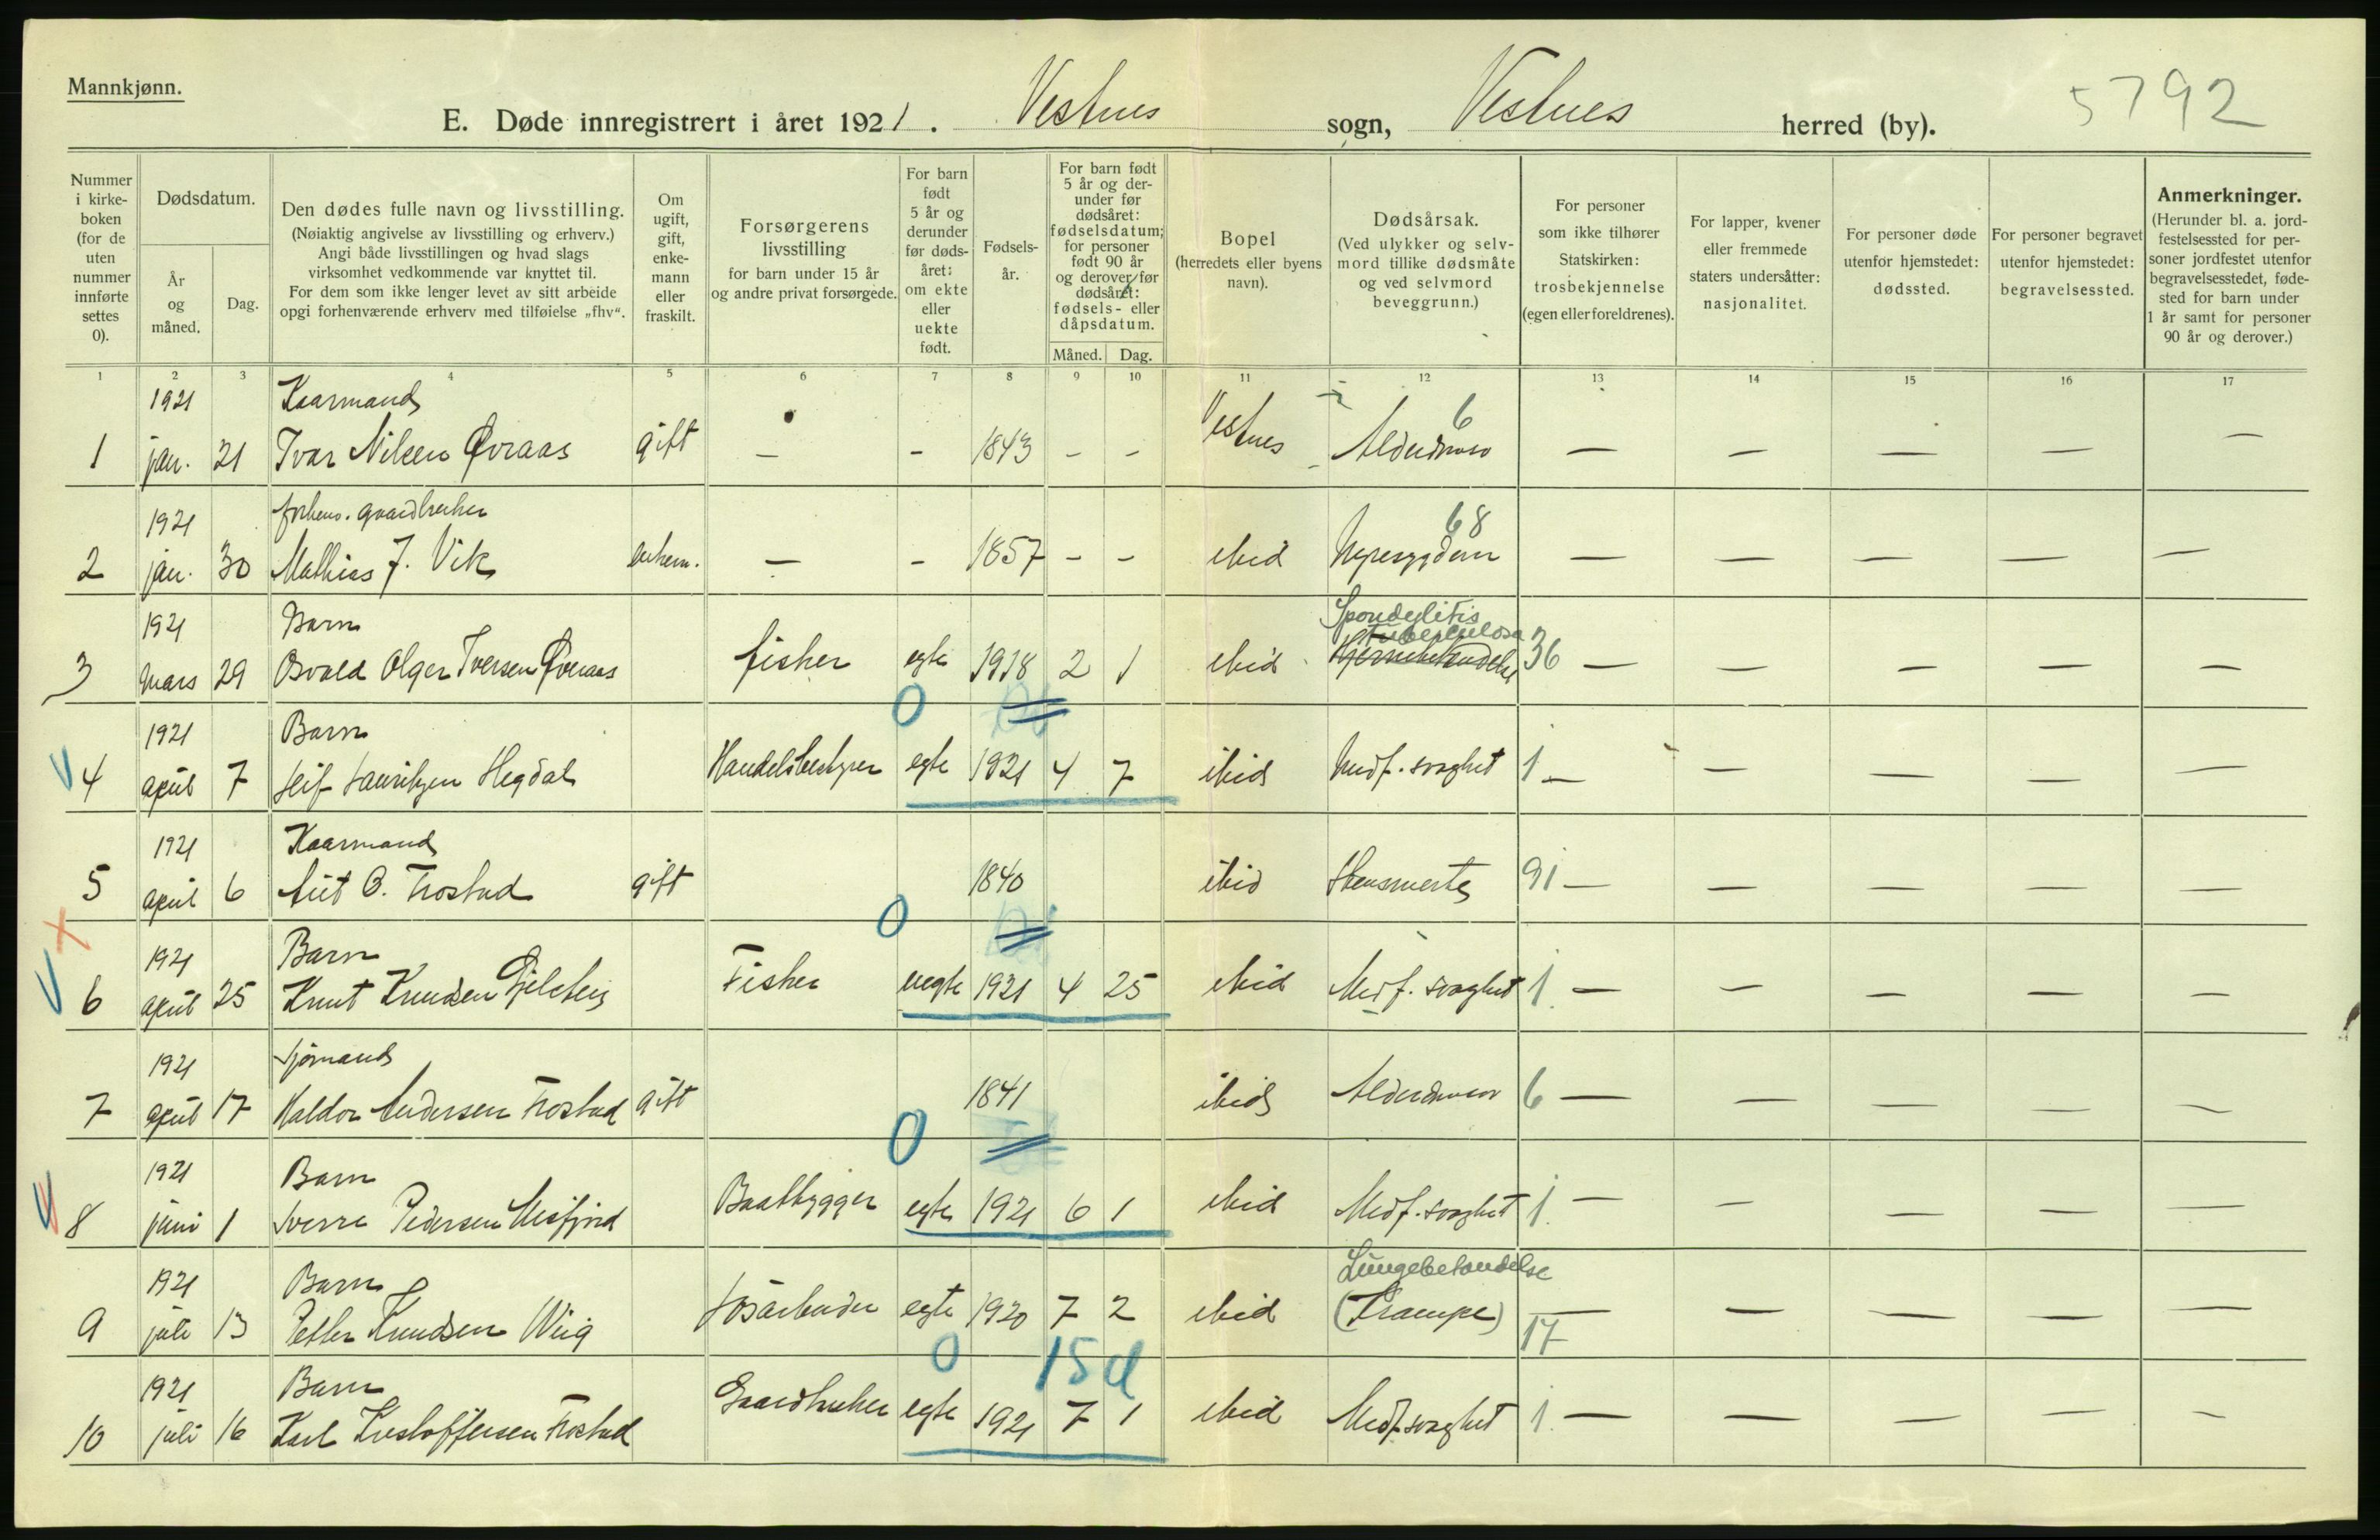 Mannkjønn.
E. Døde innregistrert i året 1921. Vestnes sogn, Vestnes herred (by).
5792
Nummer i kirkeboken (for de uten nummer innførte settes 0).
Dødsdatum.
År og måned.
Dag.
Den dødes fulle navn og livsstilling.
(Nøiaktig angivelse av livsstilling og erhverv.)
Angi både livsstillingen og hvad slags
virksomhet vedkommende var knyttet til.
For dem som ikke lenger levet av sitt arbeide
opgi forhenværende erhverv med tilføielse „fhv“.
Om ugift, gift, enkemann eller fraskilt.
Forsørgerens livsstilling
for barn under 15 år
og andre privat forsørgede.
For barn født 5 år og derunder før dødsåret: om ekte eller uekte født.
Fødselsår.
For barn født 5 år og derunder før dødsåret: fødselsdatum; for personer født 90 år og derover før dødsåret: fødsels- eller dåpsdatum.
Måned. Dag.
Bopel
(herredets eller byens navn).
Dødsårsak.
(Ved ulykker og selvmord tillike dødsmåte og ved selvmord beveggrunn.)
For personer som ikke tilhører Statskirken: trosbekjennelse (egen eller foreldrenes).
For lapper, kvener eller fremmede staters undersåtter: nasjonalitet.
For personer døde utenfor hjemstedet: dødssted.
For personer begravet utenfor hjemstedet: begravelsessted.
Anmerkninger.
(Herunder bl. a. jordfestelsessted for personer jordfestet utenfor begravelsesstedet, fødested for barn under 1 år samt for personer 90 år og derover.)
1 2 3 4 5 6 7 8 9 10 11 12 13 14 15 16 17
1921 Kaarmand 6
1 jan. 21 Ivar Nilsen Øvraas gift — - 1843 - - Vestnes Alderdom — — — — —
1921 forhenv. gaardbruker 68
2 jan. 30 Mathias J. Vik enkem. — - 1857 - - ibid Nyresygdom — — — — —
1921 Barn Spondylitis tuberculosa
3 mars 29 Osvald Olger Iversen Øveraas fisker egte 1918 2 1 ibid 36 — — — — —
0
1921 Barn
4 april 7 Leif Lauritzen Hegdal Handelsbestyrer egte 1921 4 7 ibid Medf. svaghet 1 — — — — —
1921 Kaarmand
5 april 6 O. Frostad gift 1840 ibid 91 — — — — —
0
1921 Barn
6 april 25 Knut Knudsen Fisker uegte 1921 4 25 ibid Medf. svaghet 1 — — — — —
1921 Sjømand
7 april 17 Haldor Andersen Frostad gift 1841 ibid Alderdom 6 — — — — —
0
1921 Barn
8 juni 1 Sverre Pedersen Misfjord Baatbygger egte 1921 6 1 ibid Medf. svaghet 1 — — — — —
1921 Barn Lungebetændelse
9 juli 13 Petter Knudsen Wiig Løsarbeider egte 1920 7 2 ibid (Krampe) 17 — — — — —
0 15 d
1921 Barn
10 juli 16 Karl Kristoffersen Frostad Gaardbruker egte 1921 7 1 ibid Medf. svaghet 1 — — — — —